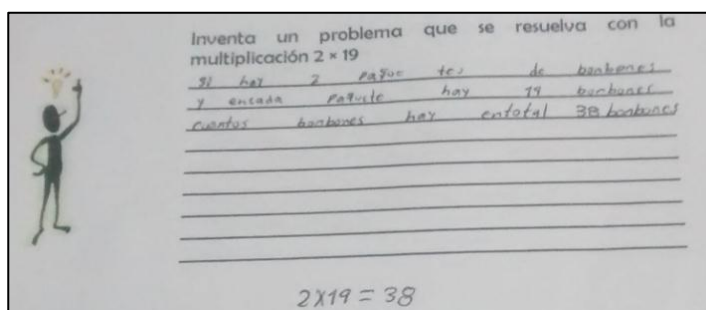 Inventa un problema que se resuelva con la
multiplicación 2 × 19
si hay 2 paque tes de bonbones
y encada paquete hay 19 bonbones
cuantos bonbones hay entotal 38 bonbones
2×19=38